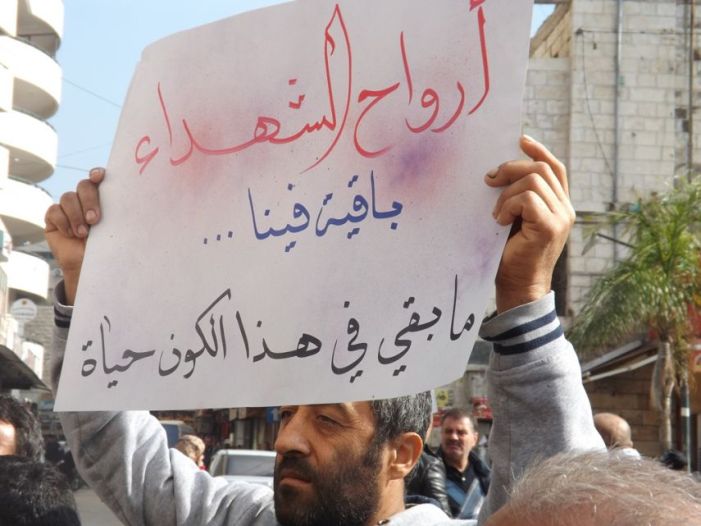 أرواح الشهداء
باقية فينا ...
ما بقي في هذا الكون حياة